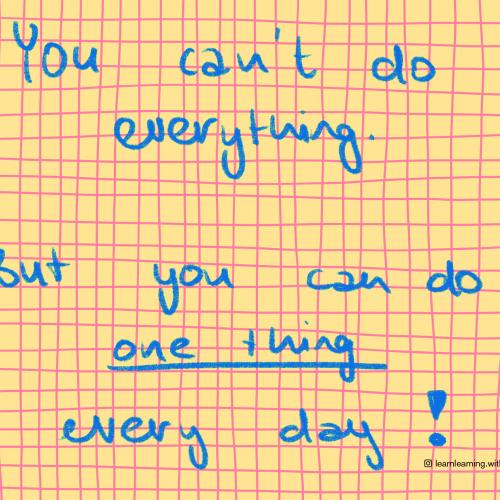 You can't do
everything.
But you can do
one thing
every day!
learnlearning.wit